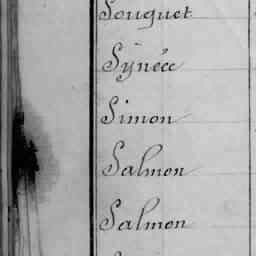 Souquet
Synéec
Simon
Salmon
Salmon